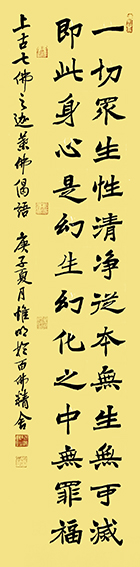 一切眾生性清净從本無生無可滅
即此身心是幻生幻化之中無罪福
上古七佛之迦葉佛偈語 庚子夏月惟明於百佛精舍